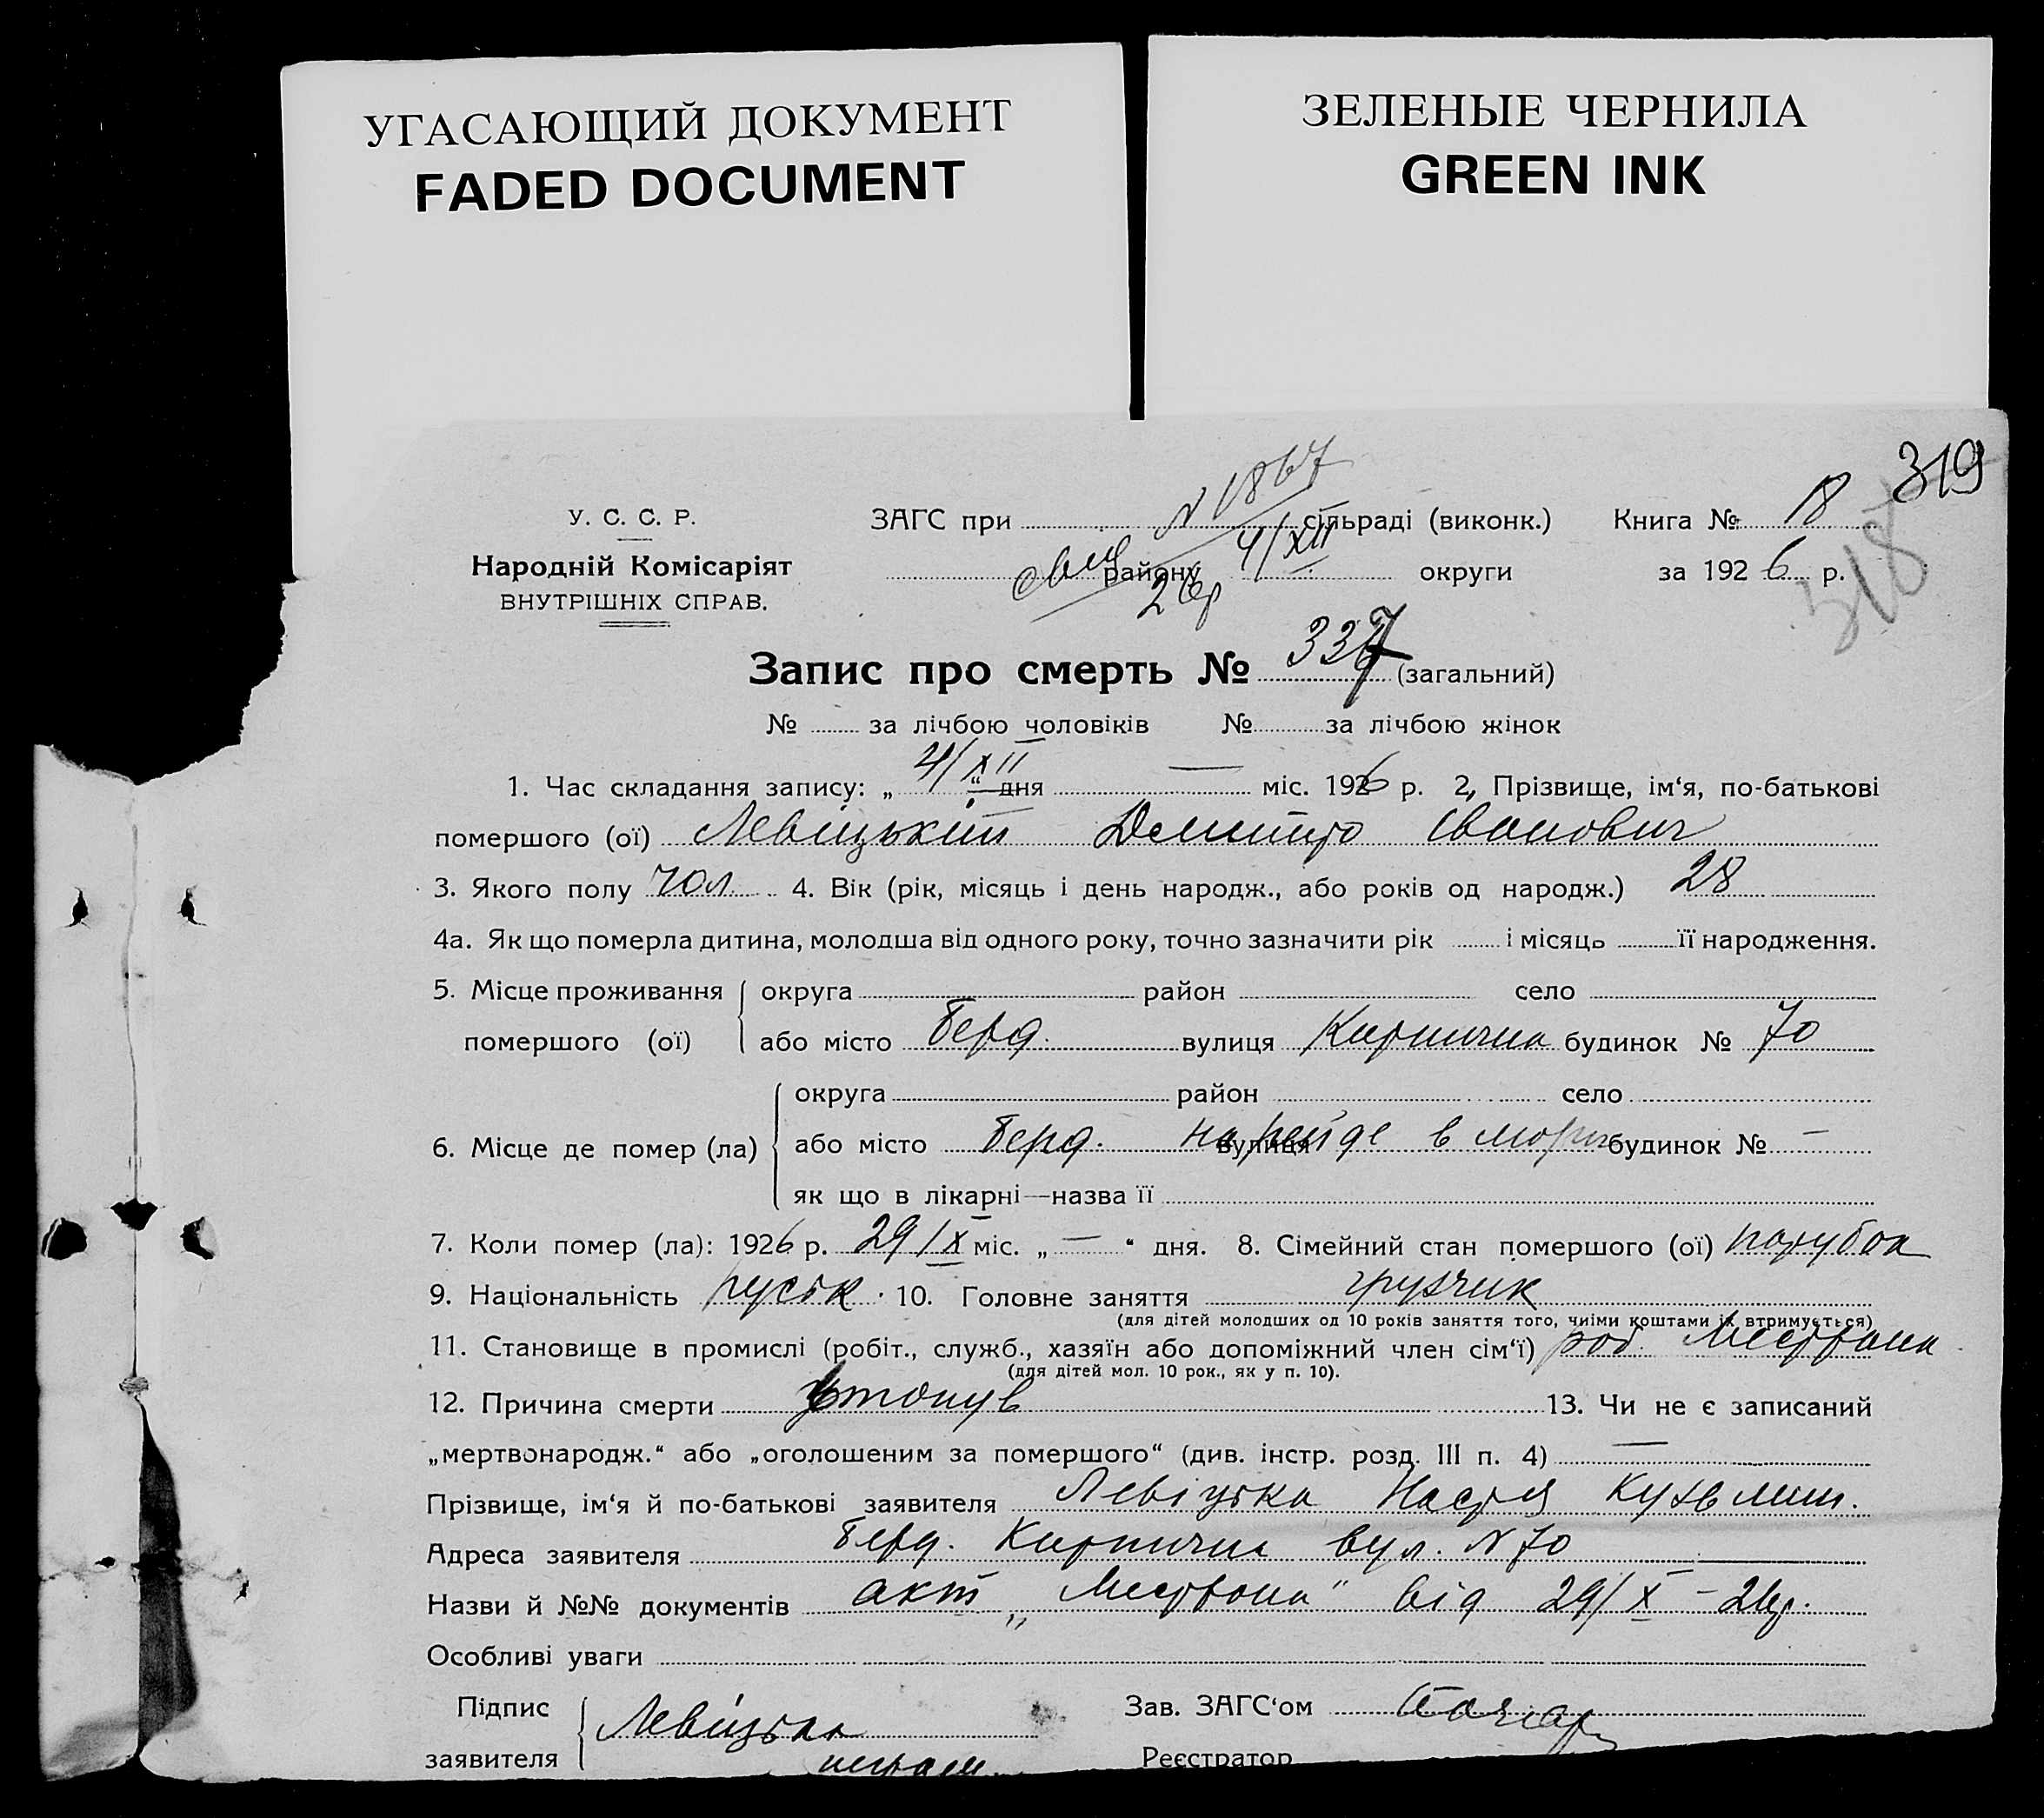 УГАСАЮЩИЙ ДОКУМЕНТ
FADED DOCUMENT
ЗЕЛЕНЫЕ ЧЕРНИЛА
GREEN INK
319
318
N 1867
4/XII
26 р
У. С. С. Р.
Народній Комісаріят
ВНУТРІШНІХ СПРАВ.
ЗАГС при сільраді (виконк.) Книга № 18
району округи за 1926 р.
Запис про смерть № 337 (загальний)
№ за лічбою чоловіків № за лічбою жінок
1. Час складання запису: „ 4/XII “ дня — міс. 1926 р. 2, Прізвище, ім‘я, по-батькові
помершого (ої) Левіцькій Дмитро Іванович
3. Якого полу чол. 4. Вік (рік, місяць і день народж., або років од народж.) 28
4а. Як що померла дитина, молодша від одного року, точно зазначити рік і місяць її народження.
5. Місце проживання округа район село
помершого (ої) або місто Берд. вулиця Кирпична будинок № 70
округа район село
6. Місце де помер (ла) або місто Берд. вулиця на рейде в морі будинок № —
як що в лікарні—назва її
7. Коли помер (ла): 1926 р. 29/X міс. „ — “ дня. 8. Сімейний стан помершого (ої) парубок
9. Національність русік. 10. Головне заняття грузчик
(для дітей молодших од 10 років заняття того, чиїми коштами їх втримується)
11. Становище в промислі (робіт., служб., хазяїн або допоміжний член сім‘ї) роб.
(для дітей мол. 10 рок., як у п. 10).
12. Причина смерти утонув 13. Чи не є записаний
„мертвонародж.“ або „оголошеним за помершого“ (див. інстр. розд. III п. 4) —
Прізвище, ім‘я й по-батькові заявителя Левіцька Настя Кузьмин.
Адреса заявителя Берд. Кирпична вул. N 70
Назви й №№ документів акт від 29/X – 26 р.
Особливі уваги
Підпис
заявителя Левіцька
Зав. ЗАГС‘ом
Реєстратор